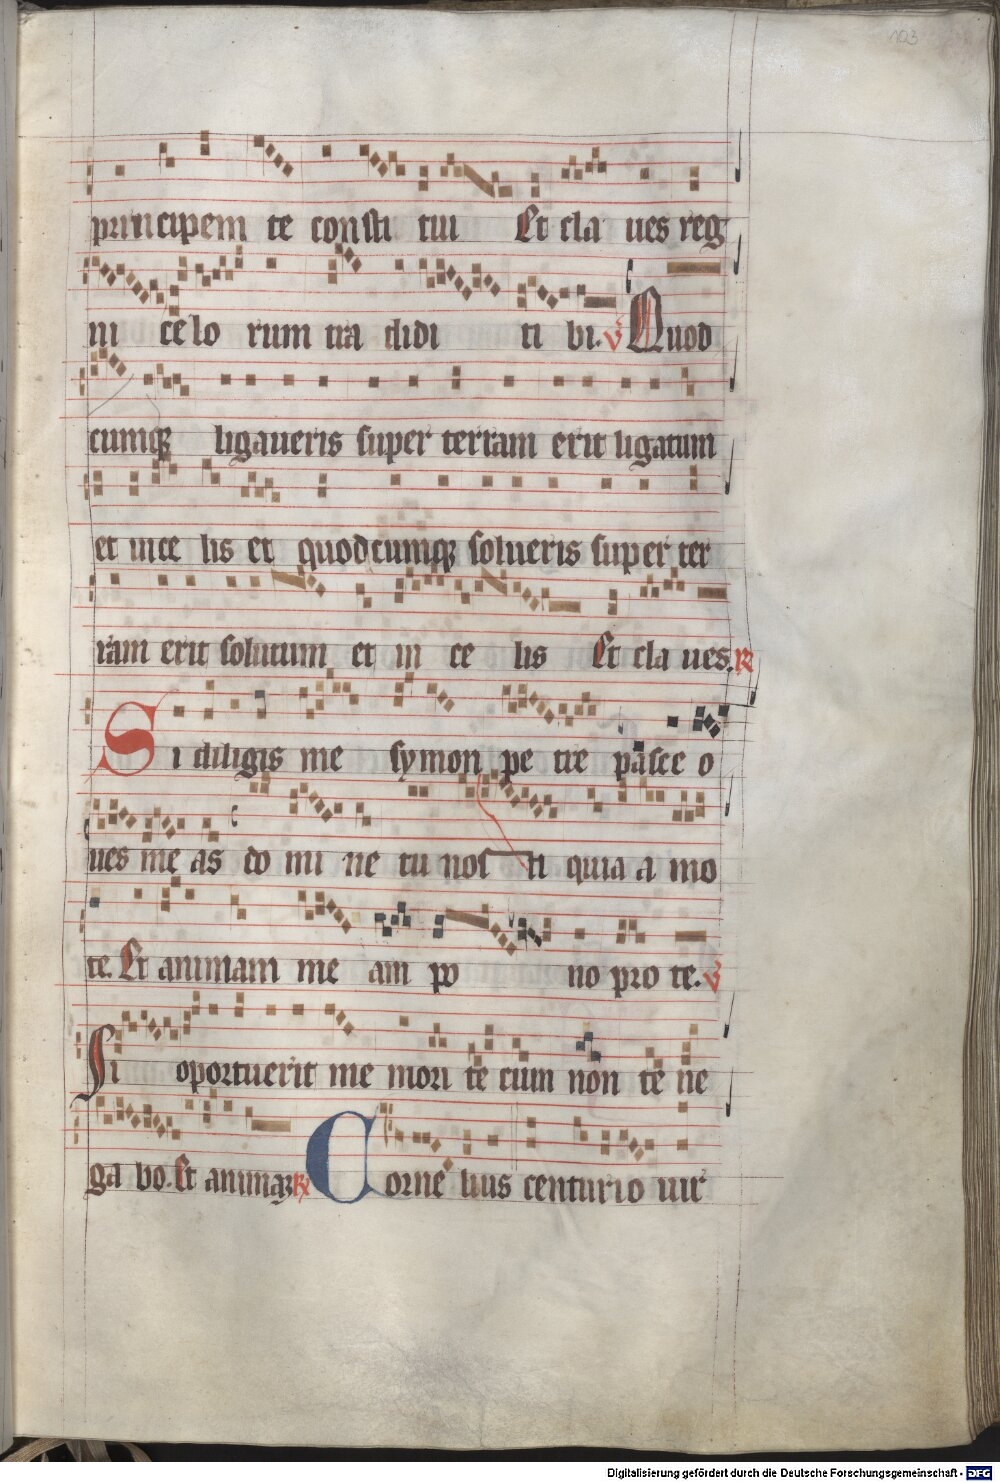 103
principem te consti tui Et cla ues reg
ni ce lo rum tra didi ti bi. v Quod
cumqꝫ ligaueris super terram erit ligatum
et in ce lis et quodcumqꝫ solueris super ter
ram erit solutum et in ce lis Et cla ues. R
Si diligis me symon pe tre pasce o
ues me as do mi ne tu nos ti quia a mo
te. Et animam me am po no pro te. v
Si oportuerit me mori te cum non te ne
ga bo. Et animaꝫ R Corne lius centurio uir
Digitalisierung gefördert durch die Deutsche Forschungsgemeinschaft - DFG